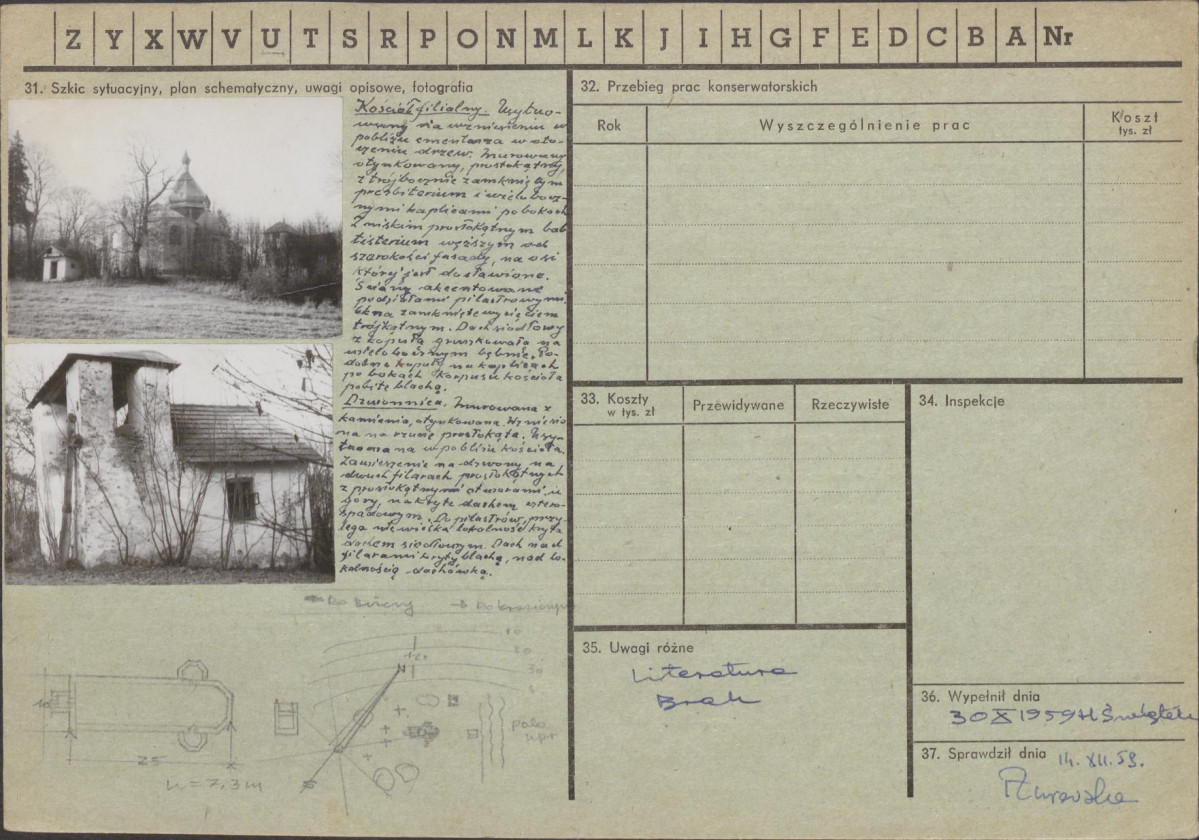 Z Y X W V U T S R P O N M L K J I H G F E D C B A Nr
31. Szkic sytuacyjny, plan schematyczny, uwagi opisowe, fotografia
Kościół filialny. Usytuo-
wany na wzniesieniu w
pobliżu cmentarza w oto-
czeniu drzew. Murowany
otynkowany, prostokątny,
z trójbocznie zamkniętym
prezbiterium i wielobocz-
nymi kaplicami po bokach
Z niskim prostokątnym bab
tisterium węższym od
szerokości fasady, na osi
której jest dostawione.
Ściany akcentowane
podziałami pilastrowymi.
Okna zamknięte wycięciem
trójkątnym. Dach siodłowy
z kopułą gruszkowatą na
wielobocznym bębnie. Po-
dobne kopuły na kaplicach
po bokach korpusu kościoła
pobite blachą.
Dzwonnica. Murowana z
kamienia, otynkowana. Wzniesio
na na rzucie prostokąta. Usy-
tuowana w pobliżu kościoła.
Zawieszenie na dzwony na
dwuch filarach prostokątnych
z prostokątnymi otworami u
góry, nakryte dachem cztero-
spadowym. Do pilastrów przy-
lega niewielka lokalność kryta
dachem siodłowym. Dach nad
filarami kryty blachą, nad lo-
kalnością - dachówką.
Do Birczy
N
30
10
25
h = 7,3 m
pola
upr
32. Przebieg prac konserwatorskich
Rok
Wyszczególnienie prac
Koszt
tys. zł
33. Koszty
w tys. zł
Przewidywane
Rzeczywiste
34. Inspekcje
35. Uwagi różne
Literatura
Brak
36. Wypełnił dnia
30 X 1959 H
37. Sprawdził dnia
14. XII. 59.